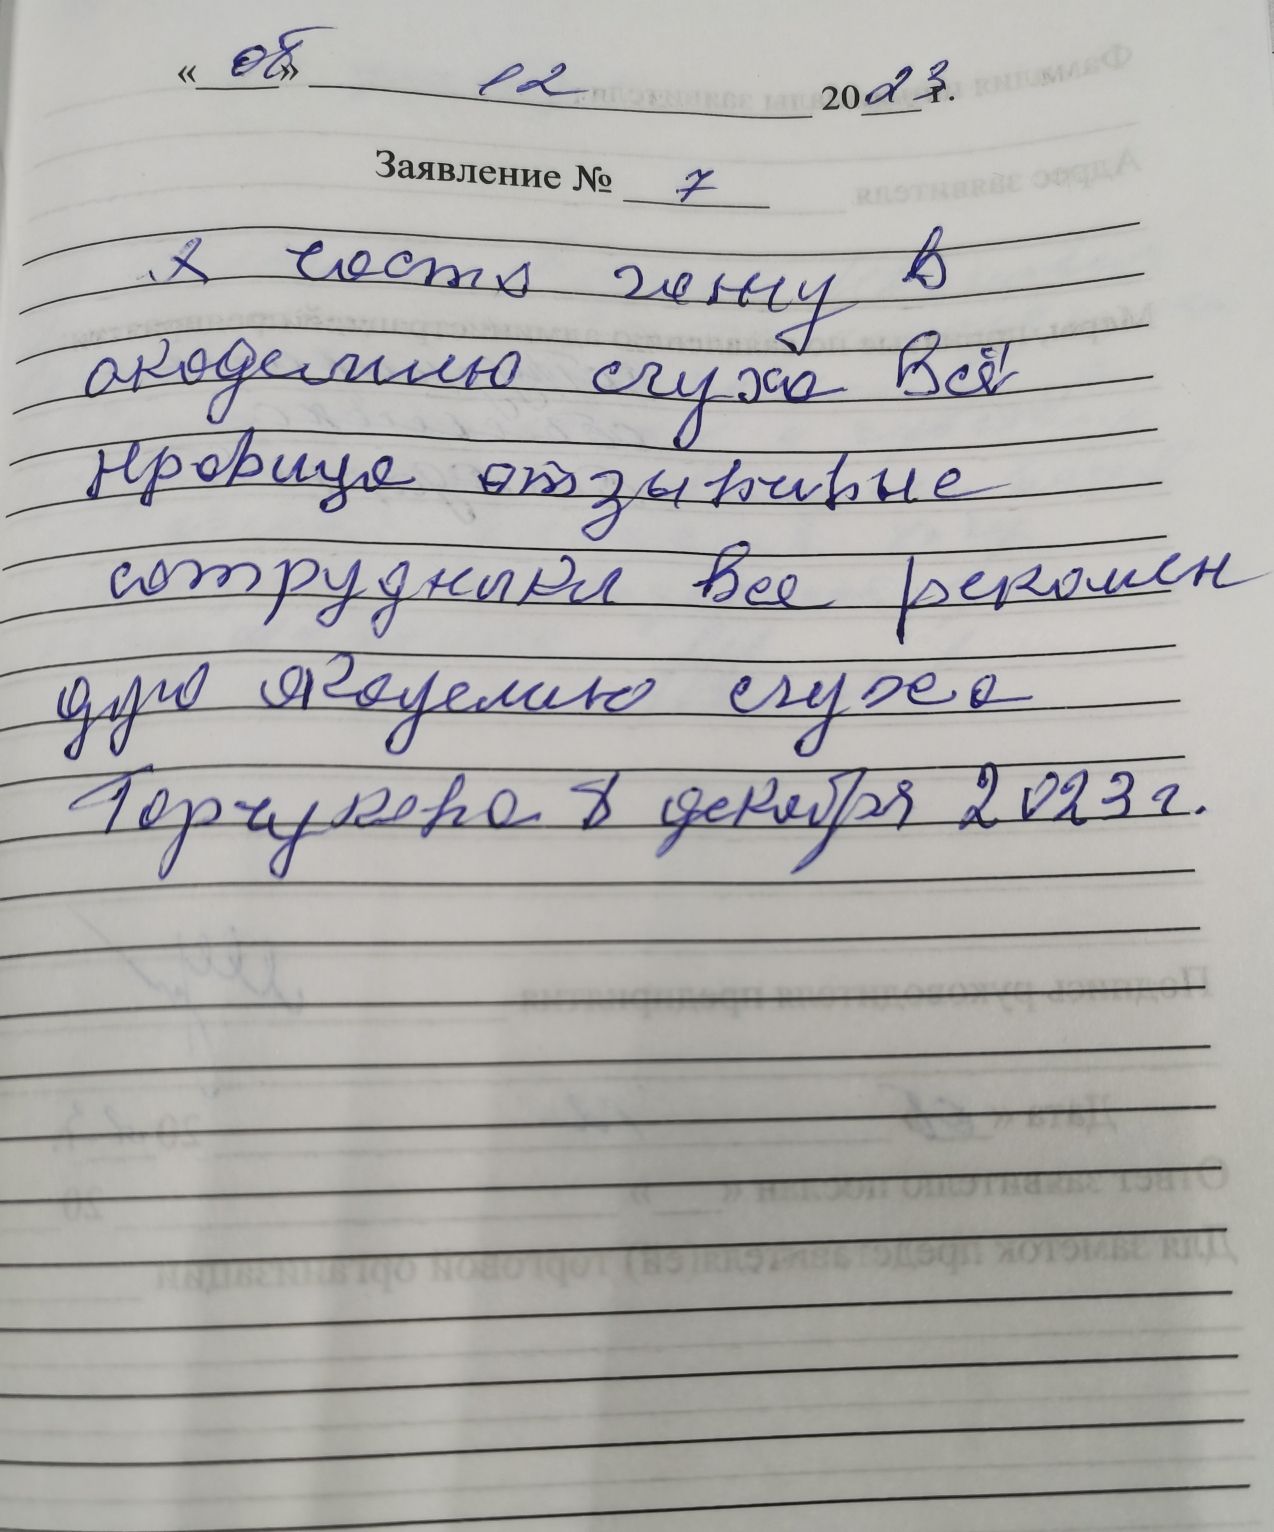 « 08 » 12 2023 г.
Заявление № 7
я часто хожу в
академию слуха всё
нравица отзывчивые
сотрудники все рекомен
дую Академию слуха
8 декабря 2023 г.